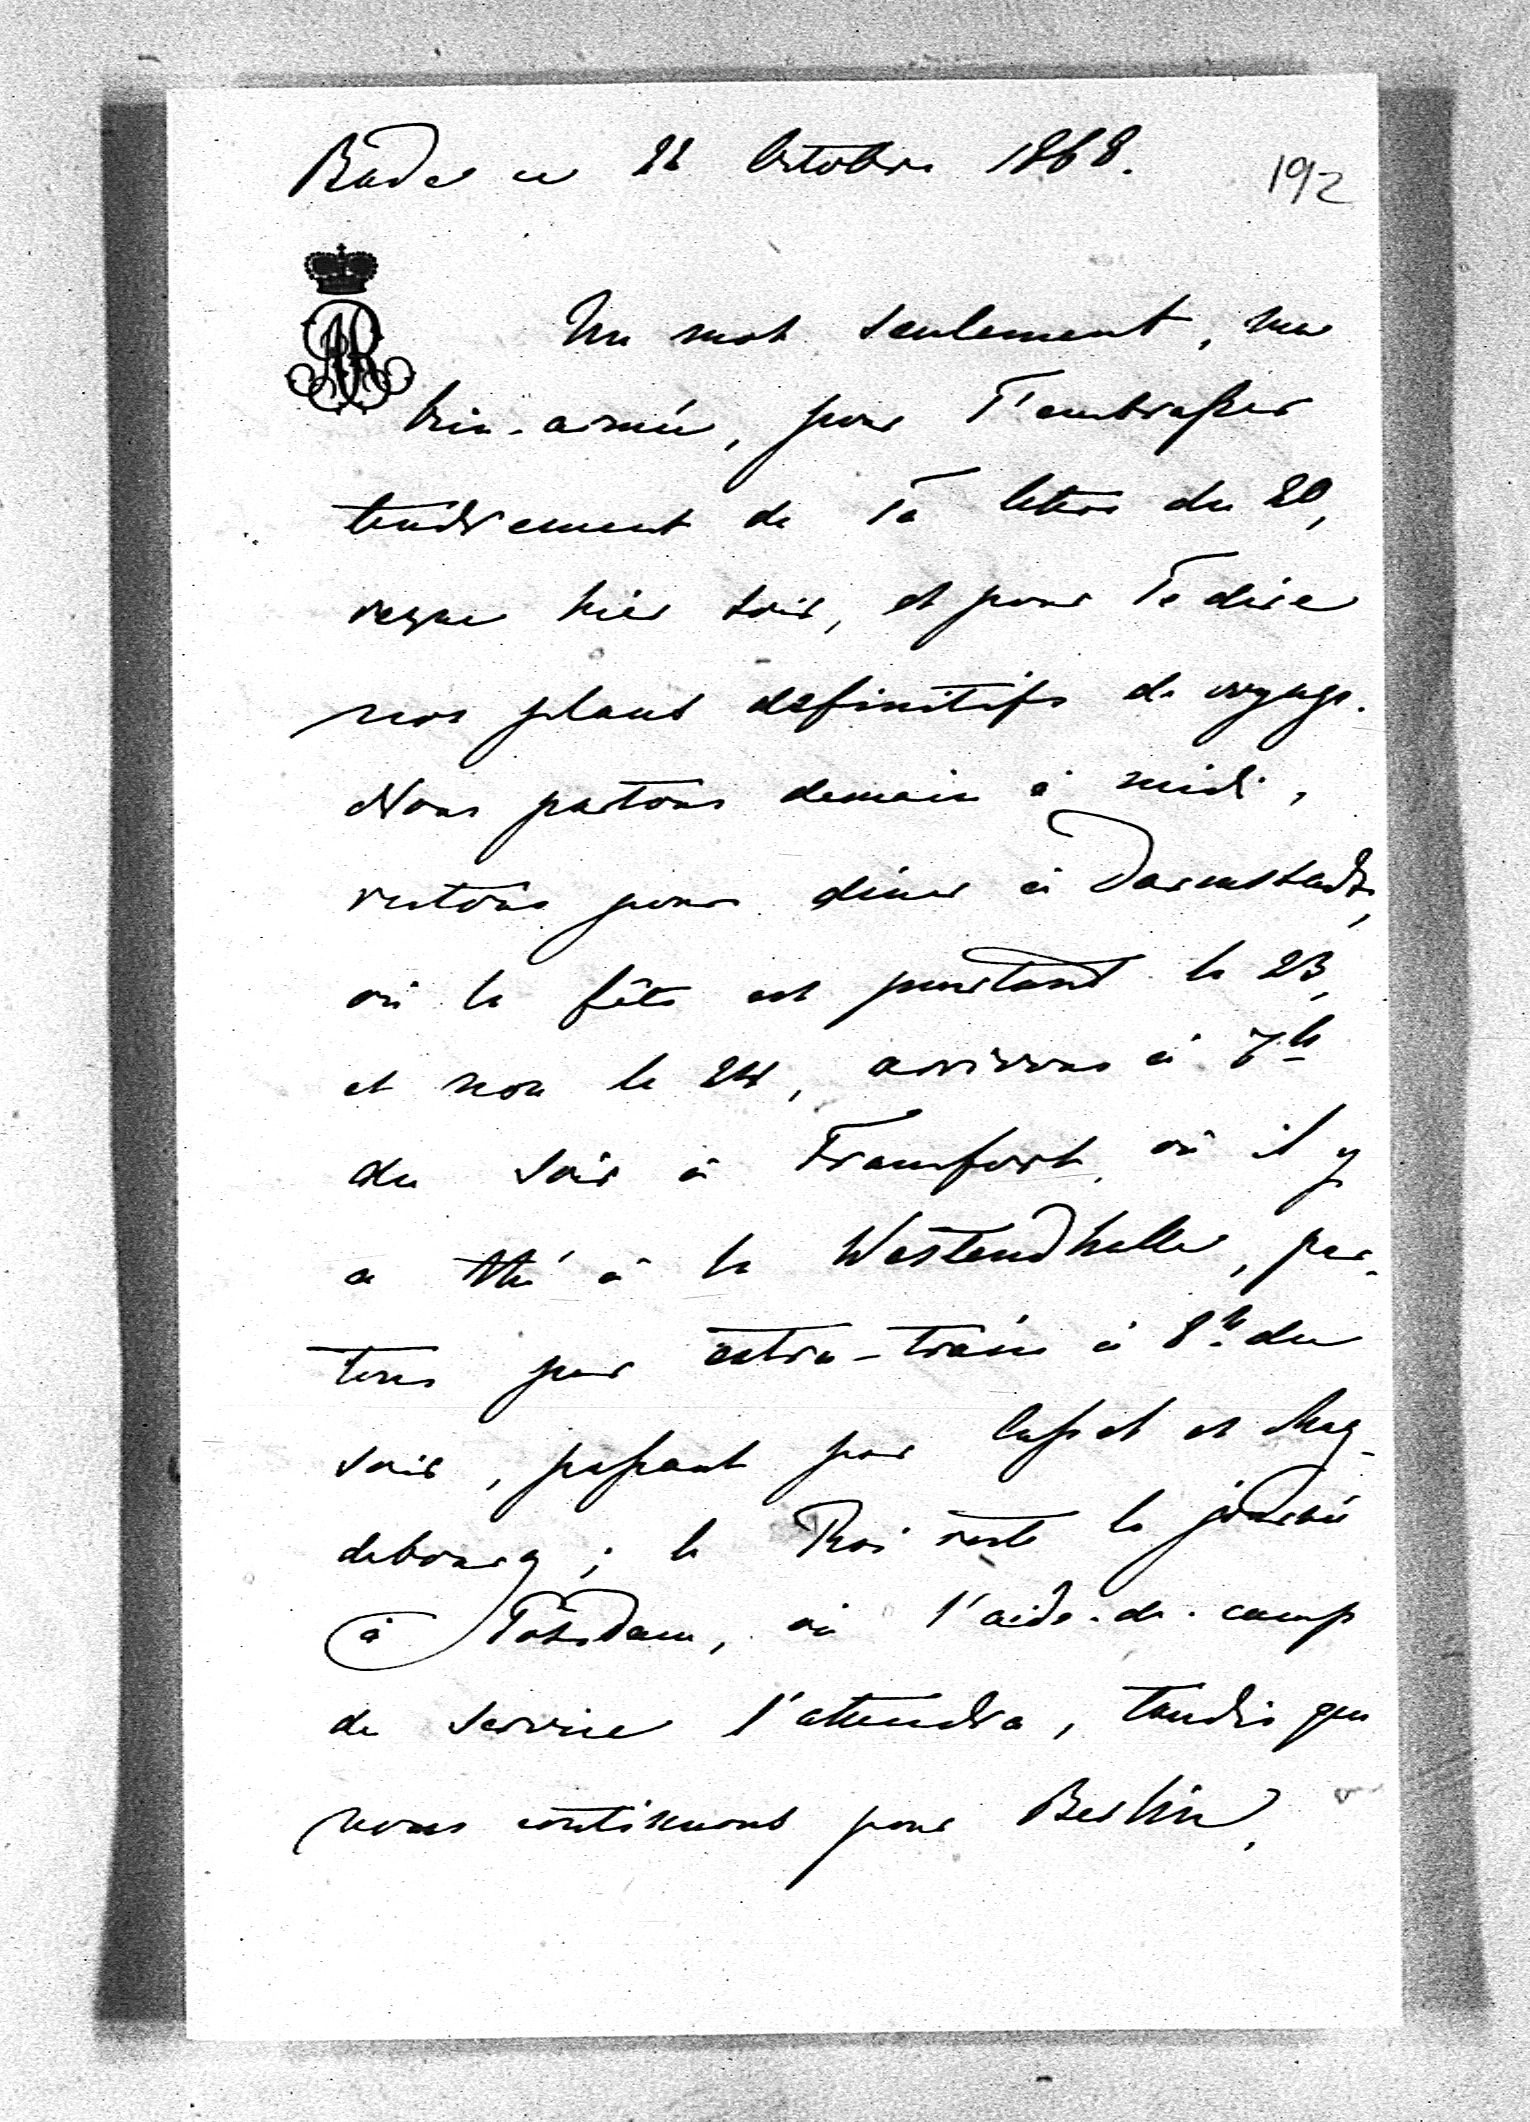 Bade ce 22 Octobre 1868.
192
AR
Un mot seulement, ma
bien-aimée, pour T'embrasser
tendrement de Ta lettre du 20,
reçue hier soir, et pour Te dire
nos plans definitifs de voyage.
Nous partons demain à midi,
restons pour diner à Darmstadt,
où la fête est pourtant le 23,
et non le 24, arrivons à 7h
du soir à Francfort, où il y
a thé à la Westendhalle, par-
tons par extra-train à 8h du
soir, passant par Cassel et Mag-
debourg; le Roi reste la journée
à Potsdam, où l'aide-de-camp
de service l'attendra, tandis que
nous continuons pour Berlin,